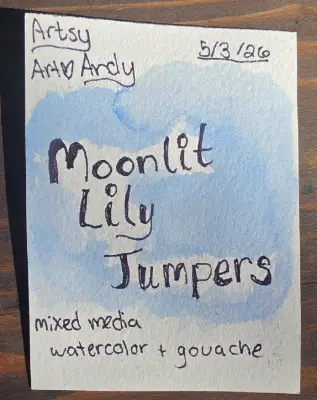 Artsy
Art♡Ardy
5/3/26
Moonlit
Lily
Jumpers
mixed media
watercolor + gouache